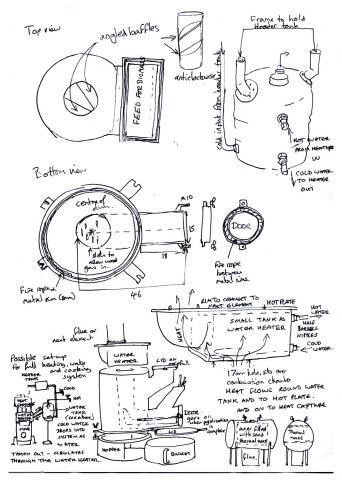 Top view
angled baffles
anticlockwise
Frame to hold
Header tank
FEED FOR BIOMASS
cold input from header tank
HOT WATER
FROM HEATER
IN
COLD WATER
TO HEATER
OUT
Bottom view
centre of
drum.
M10
15
18
46
DOOR
Fire rope
between
metal rims.
Fire rope
metal rim (5mm)
slots to
allow wood
gas in.
HOT PLATE
HOT
WATER
HALF
BARREL
NIPPLES
COLD
WATER.
SMALL TANK AS
WATER HEATER
HEAT
Flue or
next element
WATER
HEATER
LID ON
Possible set-up
for full heating, water
and cooking
system
HEADER
TANK
COLD
HOT
WATER
TANK
COLD WATER
DROPS INTO
SYSTEM AS
WATER
TAKEN OUT - CIRCULATES
THROUGH THE WATER HEATER.
HEAT FLOWS ROUND WATER
TANK AND TO HOT PLATE.
AND ON TO HEAT CAPTURE
combustion chamber
DOOR
complete
LID
HOPPER
BUCKET
inner filled
with sand
thermal mass
flue
thermal
mass